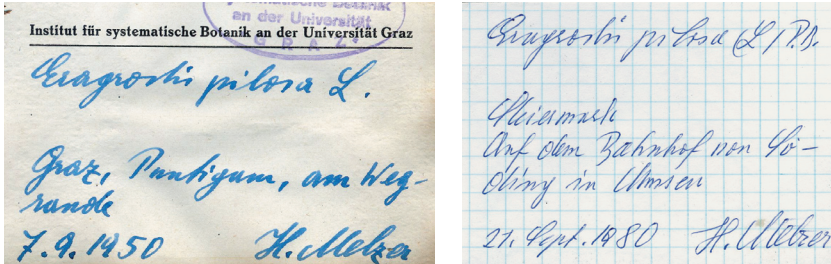 systematische Botanik
an der Universität
GRAZ
Institut für systematische Botanik an der Universität Graz
Eragrostis pilosa L.
Graz, Puntigam, am Weg-
rande
7.9.1950 H. Melzer
Eragrostis pilosa (L.) P.B.
Steiermark
Auf dem Bahnhof von Sö-
ding in Unmen
21. Sept. 1980 H. Melzer